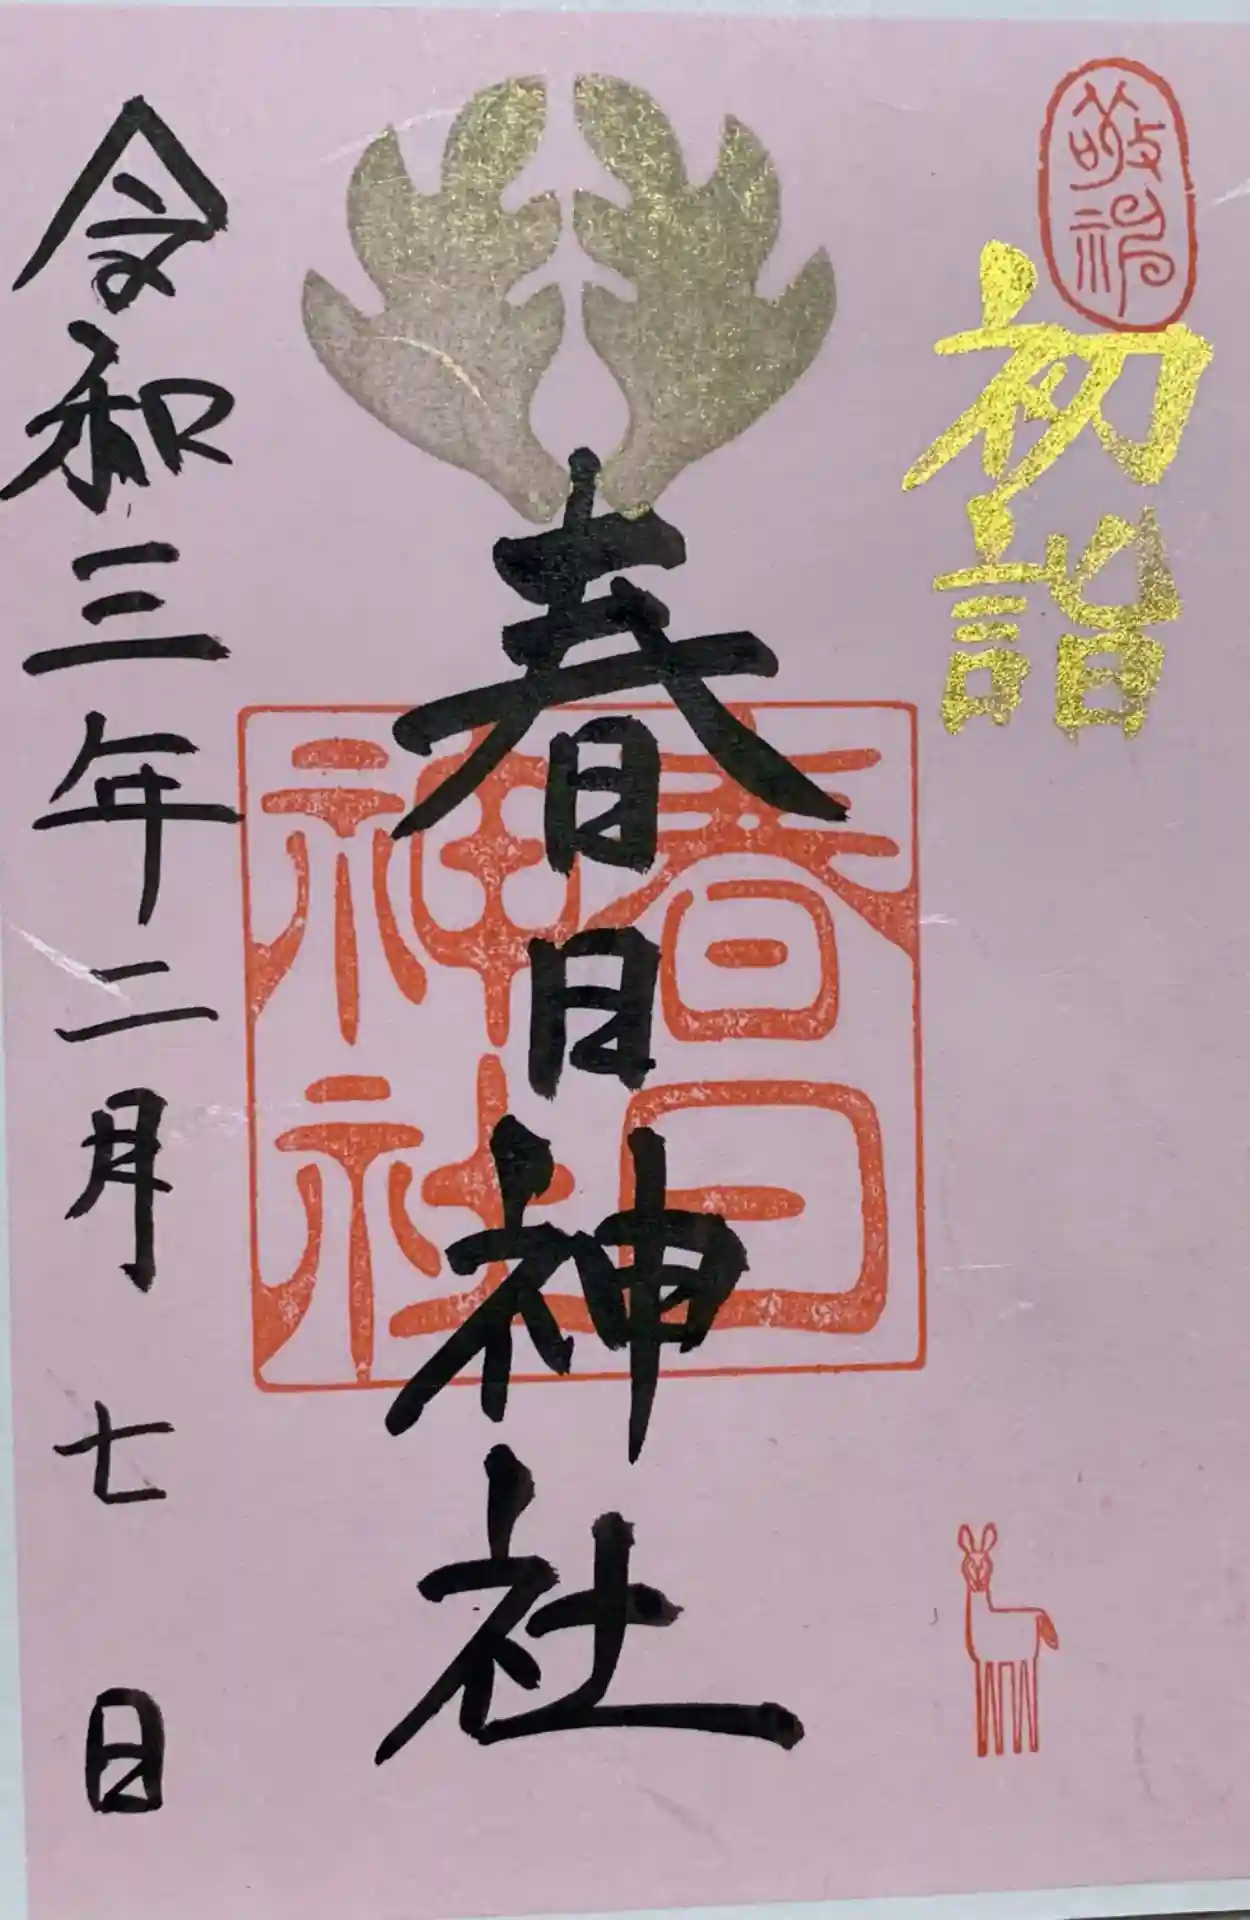 敬神
初詣
春日神社
春日神社
令和三年二月七日